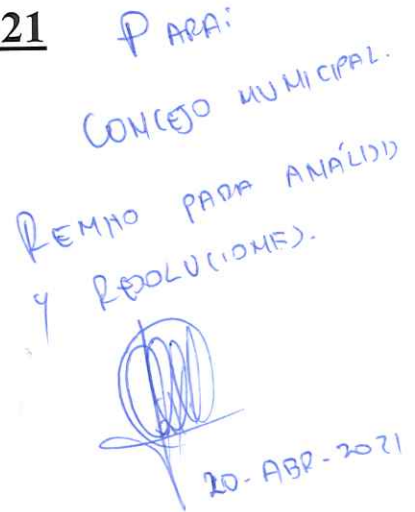 21
PARA:
CONCEJO MUNICIPAL.
REMITO PARA ANÁLISIS
Y RESOLUCIONES.
20-ABR-2021